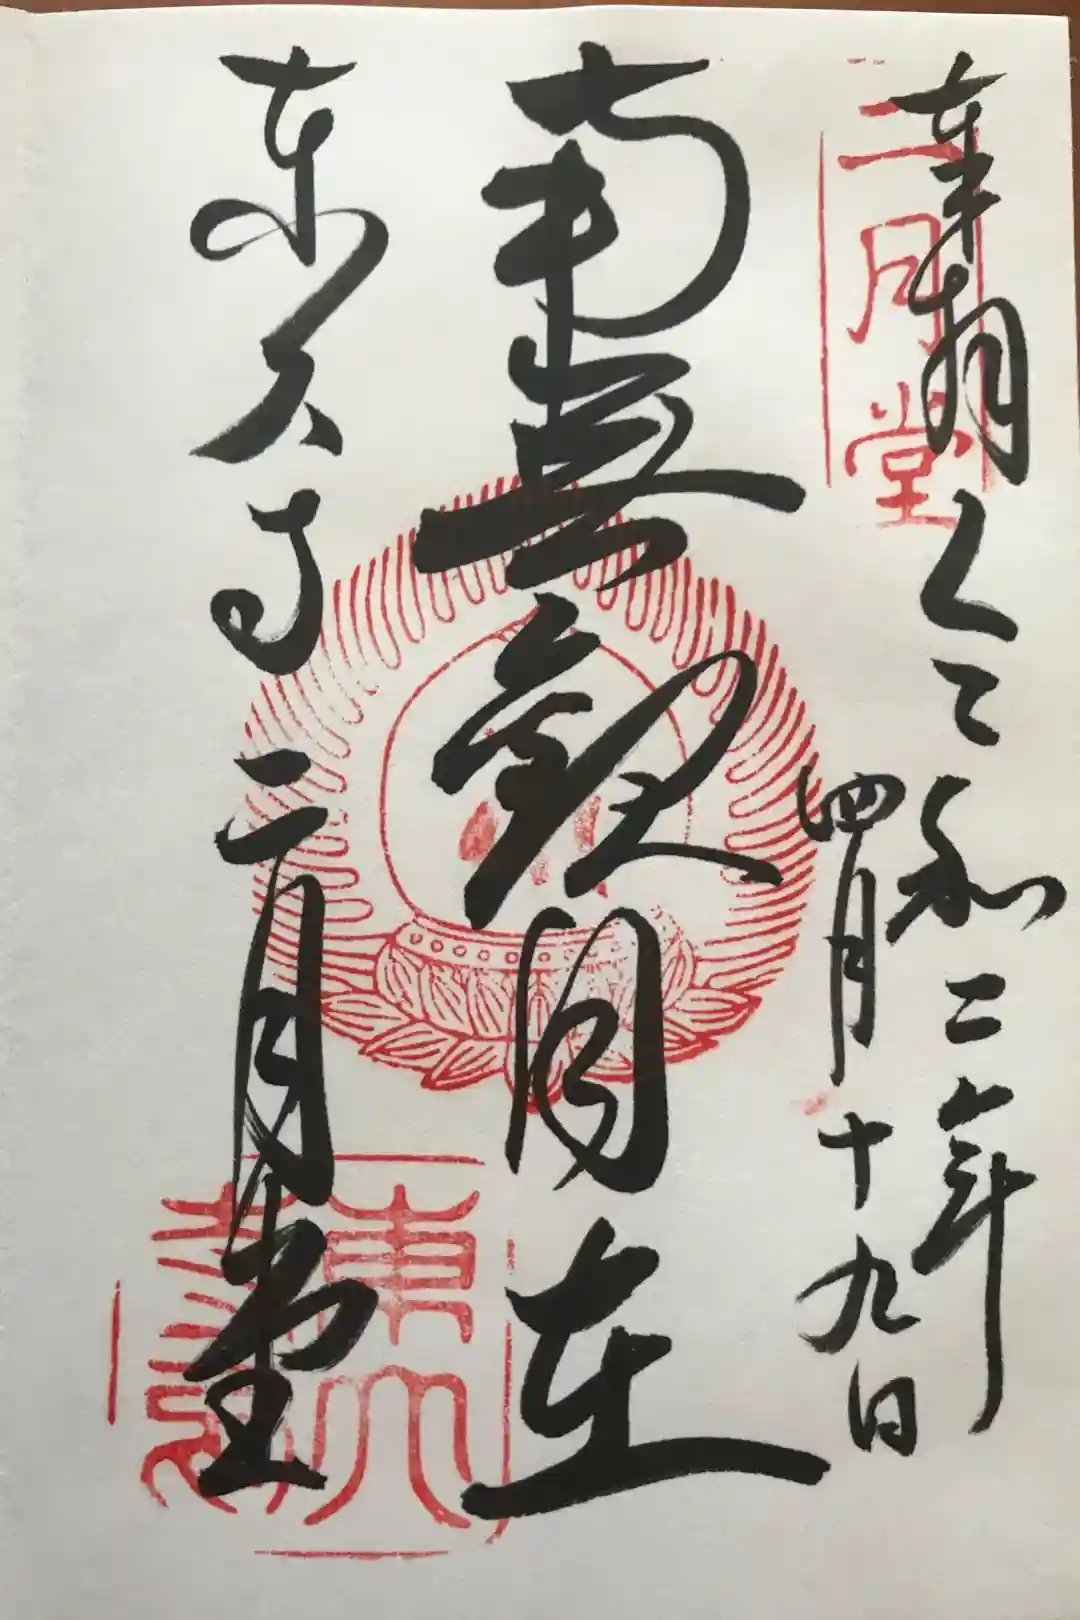 奉拝 令和二年
四月十九日
二月堂
南無観自在
東大寺二月堂
東大寺